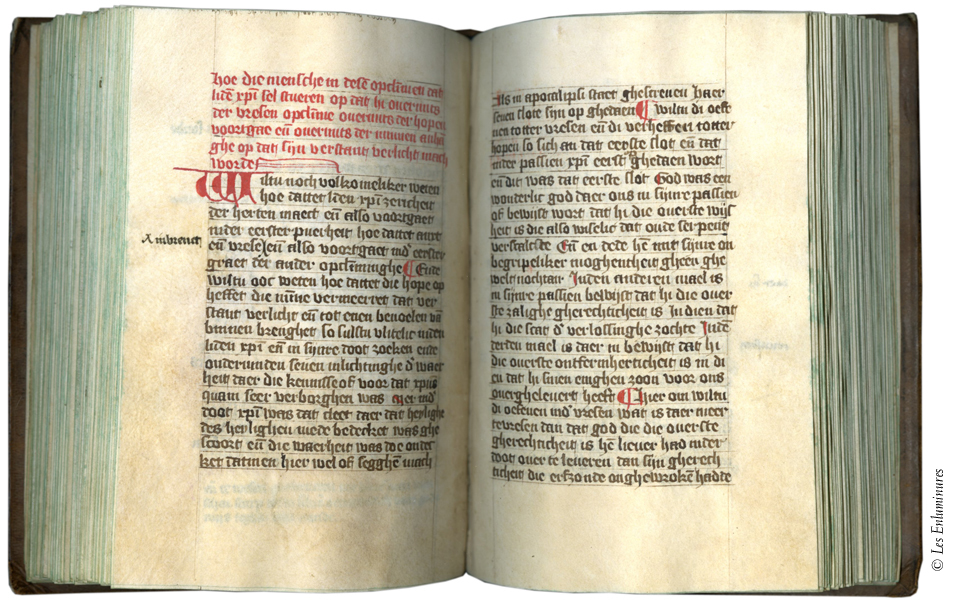 hoe die mensche in desē opclīmen dat
lidē xp̄i sel stueren op dat hi overmits
der vresen opclīme overmits der hopen
voortgae eñ overmits der minnen anhā
ghe op dat sijn verstant verlicht mach
worde
Wiltu noch volkomeliker weten
hoe dattet lidē xp̄i zericheit
der herten maect eñ also voortgaet
inder eerster puerheit hoe dattet anxt
eñ vrese eñ also voortgaet indē eersten
Ambreuch
graet der ander opclimminghe Ende
wiltu ooc weten hoe dattet die hope op
heffet die mīne vermeerret dat ver
stant verlicht eñ tot enen bevoelen vā
binnen brenghet so sulstu vlitelic inden
liden xp̄i eñ in sijnre doot zoeken ende
ondervinden seven inlichtinghe d' waer
heit daer die kennisse of voor dat xp̄us
quam seer verborghen was mer indē
doot xp̄i was dat cleet daer dat heylighe
des heylighen mede bedecket was ghe
scoort eñ die waerheit was doe ontdec
ket datmen hier wel of segghē mach
Als in apocalipsi staet ghescreven Haer
seven slote sijn op ghedaen Wiltu di oeff
nen totter vresen eñ di verheffen totter
hopen so sich an dat eerste slot eñ dat
inder passien xp̄i eerst ghedaen wort
eñ dit was dat eerste slot God was een
wonderlic god daer ons in sijnre passien
of bewijst wort dat hi die overste wijs
heit is die also wiselic dat oude serpent
verscalcste Eñ en dede hē mit sijnre on
begripeliker moghentheit gheen ghe
welt nochtan Inden anderen mael is
in sijnre passien bewijst dat hi die over
ste zalighe gherechticheit is In dien dat
hi die scat d' verlossinghe zochte Indē
derden mael is daer in bewijst dat hi
die overste ontfermherticheit is in di
en dat hi sinen enighen zoon voor ons
overghelevert heeft Hier om wiltu
di oefenen indē vresen wat is daer meer
tevresen dan dat god die die overste
gherechticheit is hē liever had inder
doot over te leveren dan sijn gherech
ticheit die erfzonde onghewrokē hadde
© Les Enluminures